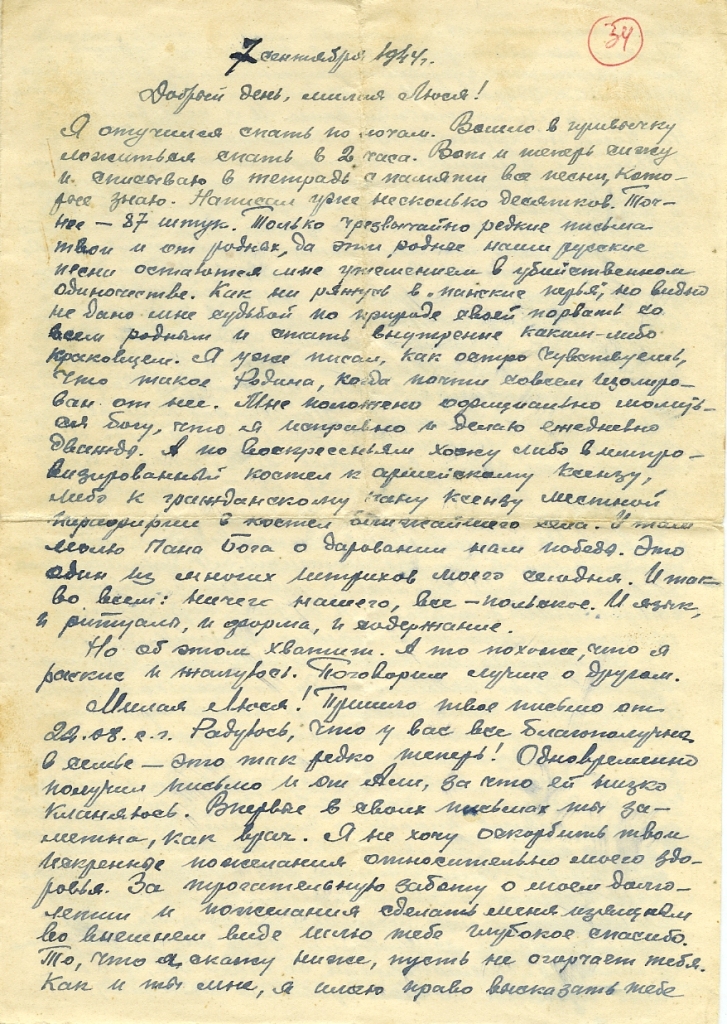 34
7 сентября 1944 г.
Добрый день, милая Люся!
Я отучился спать по ночам. Вошло в привычку
ложиться спать в 2 часа. Вот и теперь сижу
и списываю в тетрадь с памяти все песни, кото-
рые знаю. Написал уже несколько десятков. Точ-
нее – 87 штук. Только чрезвычайно редкие письма
твои и от родных, да эти родные наши русские
песни остаются мне утешением в убийственном
одиночестве. Как ни ряжусь в „панские перья", но видно
не дано мне судьбой по природе своей порвать со
всем родным и стать внутренне каким-либо
краковцем. Я уже писал, как остро чувствуешь,
что такое Родина, когда почти совсем изолиро-
ван от нее. Мне положено официально молить-
ся богу, что я исправно и делаю ежедневно
дважды. А по воскресеньям хожу либо в импро-
визированный костел к армейскому ксендзу,
либо к гражданскому пану ксендзу местной
в костел ближайшего села. И там
молю Пана Бога о даровании нам победы. Это
один из многих штрихов моего сегодня. И так
во всем: ничего нашего, все – польское. И язык,
и ритуалы, и форма, и содержание.
Но об этом хватит. А то похоже, что я
раскис и жалуюсь. Поговорим лучше о другом.
Милая Люся! Пришло твое письмо от
22.08. с.г. Радуюсь, что у вас все благополучно
в семье – это так редко теперь! Одновременно
получил письмо и от Али, за что ей низко
кланяюсь. Впервые в своих письмах ты за-
метна, как врач. Я не хочу оскорбить твои
искренние пожелания относительно моего здо-
ровья. За трогательную заботу о моем долго-
летии и пожелания сделать меня изящным
во внешнем виде шлю тебе глубокое спасибо.
То, что я скажу ниже, пусть не огорчает тебя.
Как и ты мне, я имею право высказать тебе